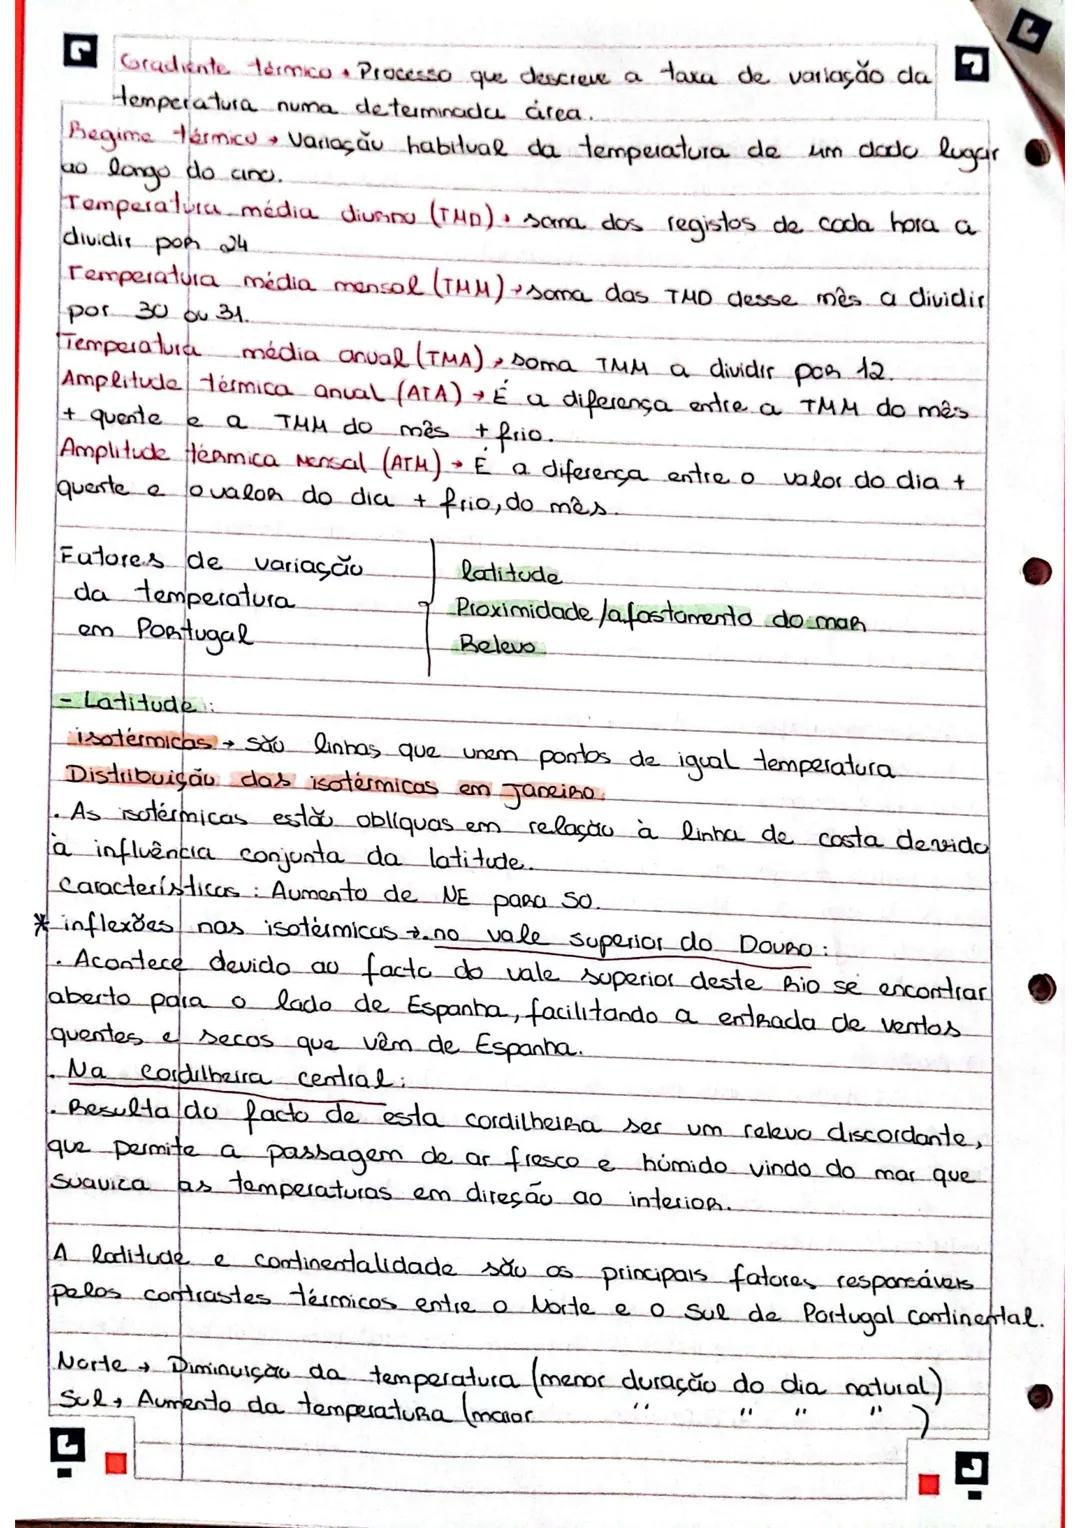 Gradiente térmico → Processo que descreve a taxa de variação da
temperatura numa determinada área.
Regime térmico → Variação habitual da temperatura de um dado lugar
ao longo do ano.
Temperatura média diurna (TMD) → soma dos registos de cada hora a
dividir por 24
Temperatura média mensal (TMM) → soma das TMD desse mês a dividir
por 30 ou 31.
Temperatura média anual (TMA) → soma TMM a dividir por 12.
Amplitude térmica anual (ATA) → É a diferença entre a TMM do mês
+ quente e a TMM do mês + frio.
Amplitude térmica Mensal (ATM) → É a diferença entre o valor do dia +
quente e o valor do dia + frio, do mês.
Fatores de variação
da temperatura
em Portugal
latitude
Proximidade/afastamento do mar
Relevo
- Latitude:
isotérmicas → são linhas que unem pontos de igual temperatura
Distribuição das isotérmicas em Janeiro:
. As isotérmicas estão oblíquas em relação à linha de costa devido
à influência conjunta da latitude.
Características: Aumento de NE para SO.
* inflexões nas isotérmicas →.no vale superior do Douro:
. Acontece devido ao facto do vale superior deste Rio se encontrar
aberto para o lado de Espanha, facilitando a entrada de ventos
quentes e secos que vêm de Espanha.
. Na Cordilheira central:
. Resulta do facto de esta cordilheira ser um relevo discordante,
que permite a passagem de ar fresco e húmido vindo do mar que
suaviza as temperaturas em direção ao interior.
A latitude e continentalidade são os principais fatores responsáveis
pelos contrastes térmicos entre o Norte e o Sul de Portugal continental.
Norte → Diminuição da temperatura (menor duração do dia natural)
Sul → Aumento da temperatura (maior " " " ")